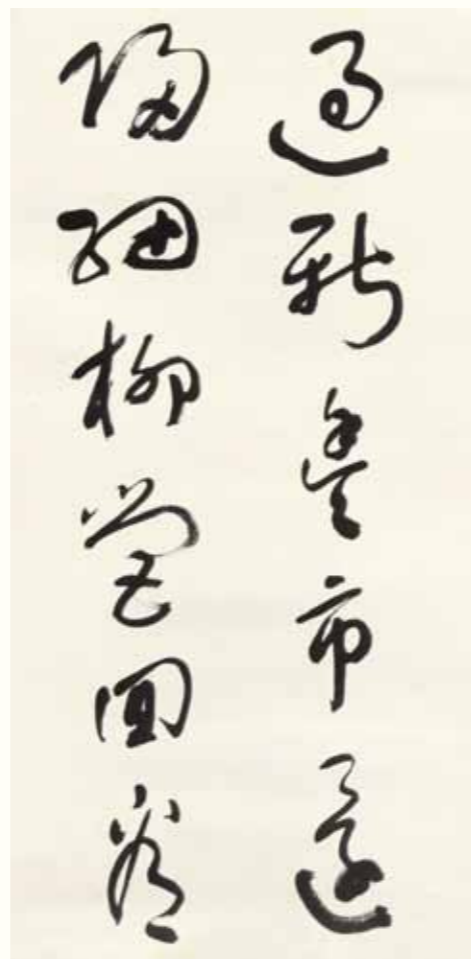 過新豐市還
歸細柳營回看